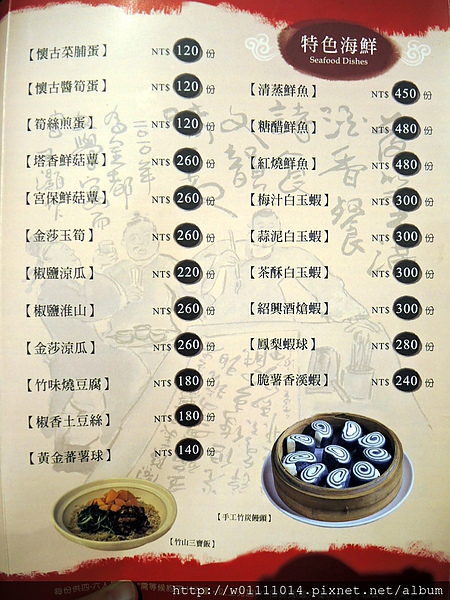 【懷古菜脯蛋】 NT$ 120 份
【懷古醬筍蛋】 NT$ 120 份
【筍絲煎蛋】 NT$ 120 份
【塔香鮮菇蕈】 NT$ 260 份
【宮保鮮菇蕈】 NT$ 260 份
【金莎玉筍】 NT$ 260 份
【椒鹽涼瓜】 NT$ 220 份
【椒鹽淮山】 NT$ 260 份
【金莎涼瓜】 NT$ 260 份
【竹味燒豆腐】 NT$ 180 份
【椒香土豆絲】 NT$ 180 份
【黃金蕃薯球】 NT$ 140 份
特色海鮮
Seafood Dishes
【清蒸鮮魚】 NT$ 450 份
【糖醋鮮魚】 NT$ 480 份
【紅燒鮮魚】 NT$ 480 份
【梅汁白玉蝦】 NT$ 300 份
【蒜泥白玉蝦】 NT$ 300 份
【茶酥白玉蝦】 NT$ 300 份
【紹興酒熗蝦】 NT$ 300 份
【鳳梨蝦球】 NT$ 280 份
【脆薯香溪蝦】 NT$ 240 份
【手工竹炭饅頭】
【竹山三寶飯】
http://w01111014.pixnet.net/album